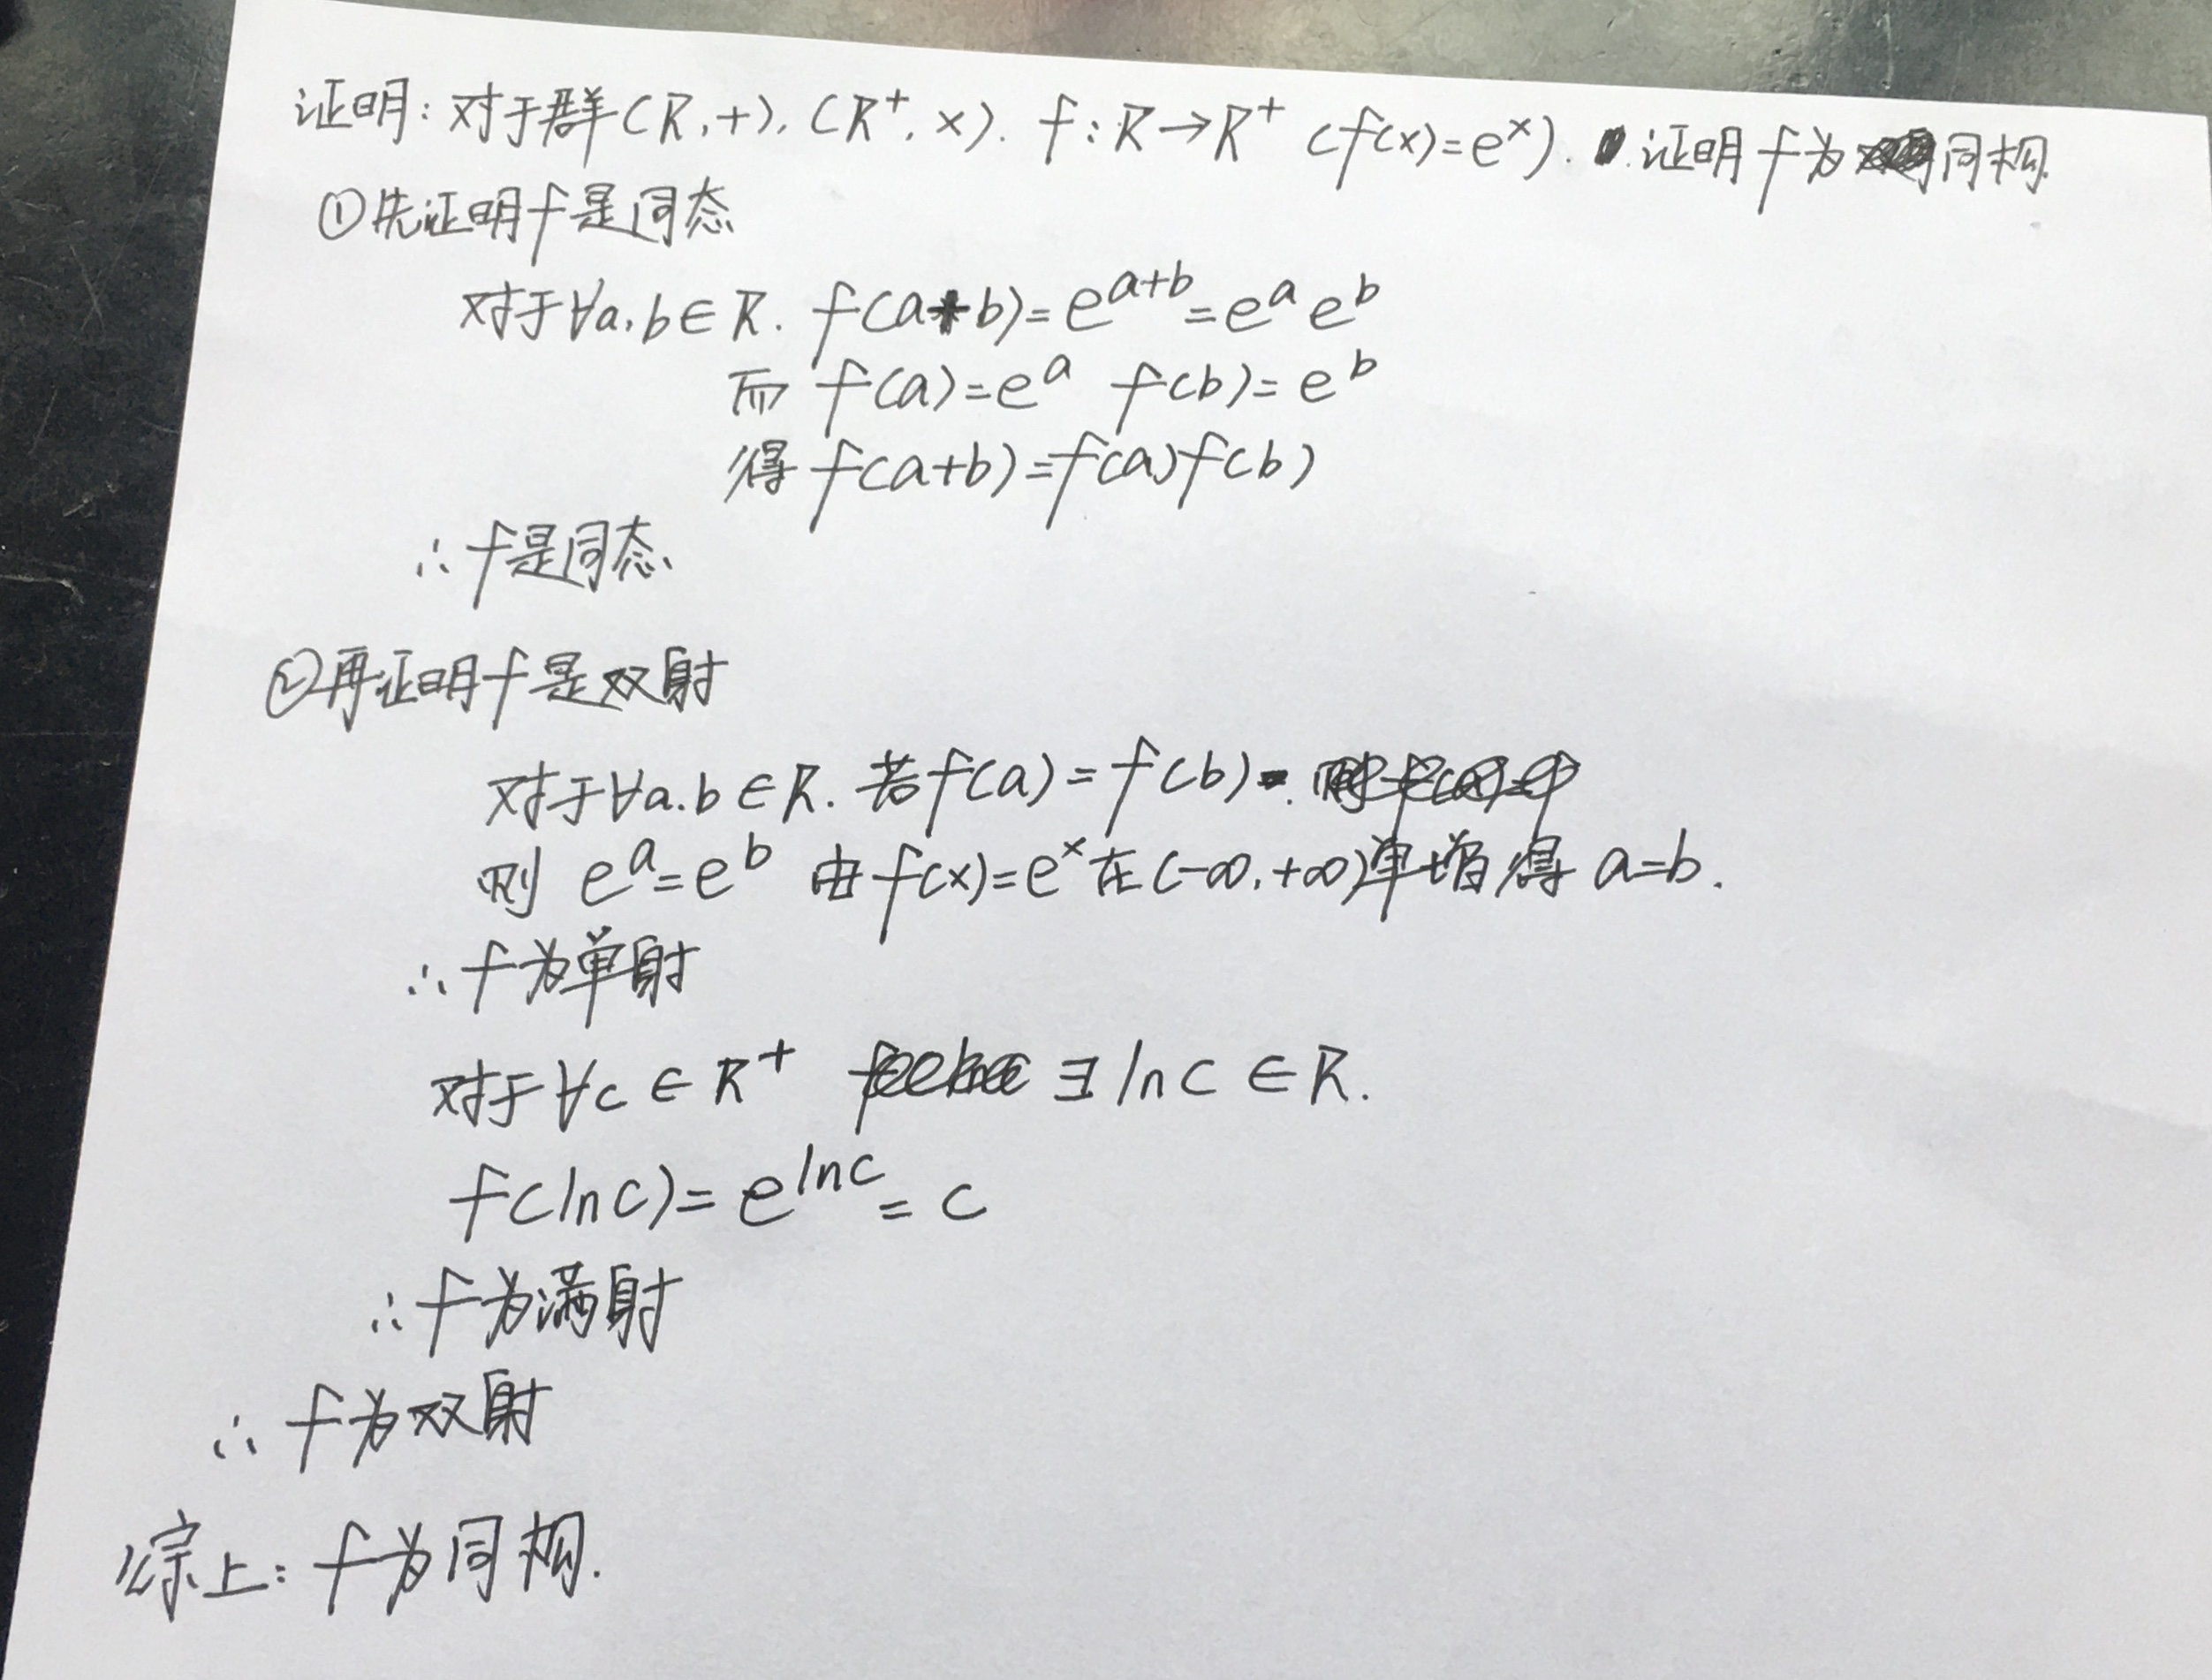 证明：对于群(R,+).(R⁺,×). f:R→R⁺ (f(x)=eˣ). 证明f为同构.
①先证明f是同态
对于∀a,b∈R. f(a+b)=e^{a+b}=e^a e^b
而 f(a)=e^a f(b)=e^b
得 f(a+b)=f(a)f(b)
∴f是同态
②再证明f是双射
对于∀a.b∈R. 若f(a)=f(b).
则 e^a=e^b 由f(x)=e^x在(-∞,+∞)单增得 a=b.
∴f为单射
对于∀c∈R⁺ ∃lnc∈R.
f(lnc)=e^{lnc}=c
∴f为满射
∴f为双射
综上：f为同构.